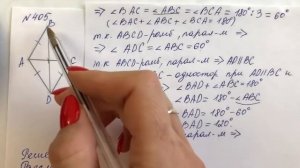 N 405
B
⇒ ∠BAC = ∠ABC = ∠BCA = 180° : 3 = 60°
(∠BAC + ∠ABC + ∠BCA = 180°)
т.к. ABCD-ромб, парал-м ⇒
⇒ ∠ADC = ∠ABC = 60°
A
C
т.к. ABCD-ромб, парал-м ⇒ AD∥BC
-одностор при AD∥BC и
D
⇒ ∠BAD + ∠ABC = 180°
∠BAD = 180° - ∠ABC
∠BAD = 180° - 60°
∠BAD = 120°
парал-м ⇒
Реше